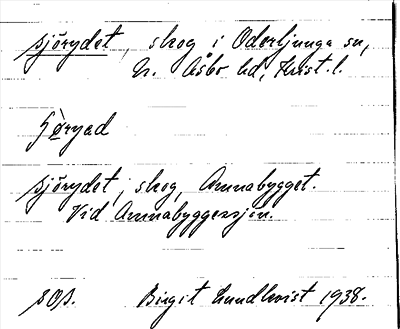 sjörydet, skog i Oderljunga sn,
N. Åsbo hd, Krist. l.
sjörydet, skog, Annabygget.
Vid Annabyggessjön.
SOB. Birgit Lundkvist 1938.